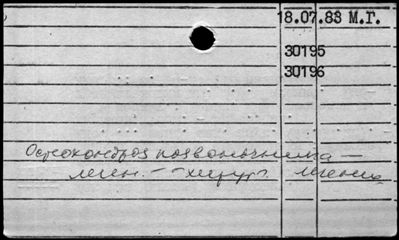 18.07.83 М.Г.
30195
30196
Остеохондроз позвоночника —
лечен. — хирург. лечение